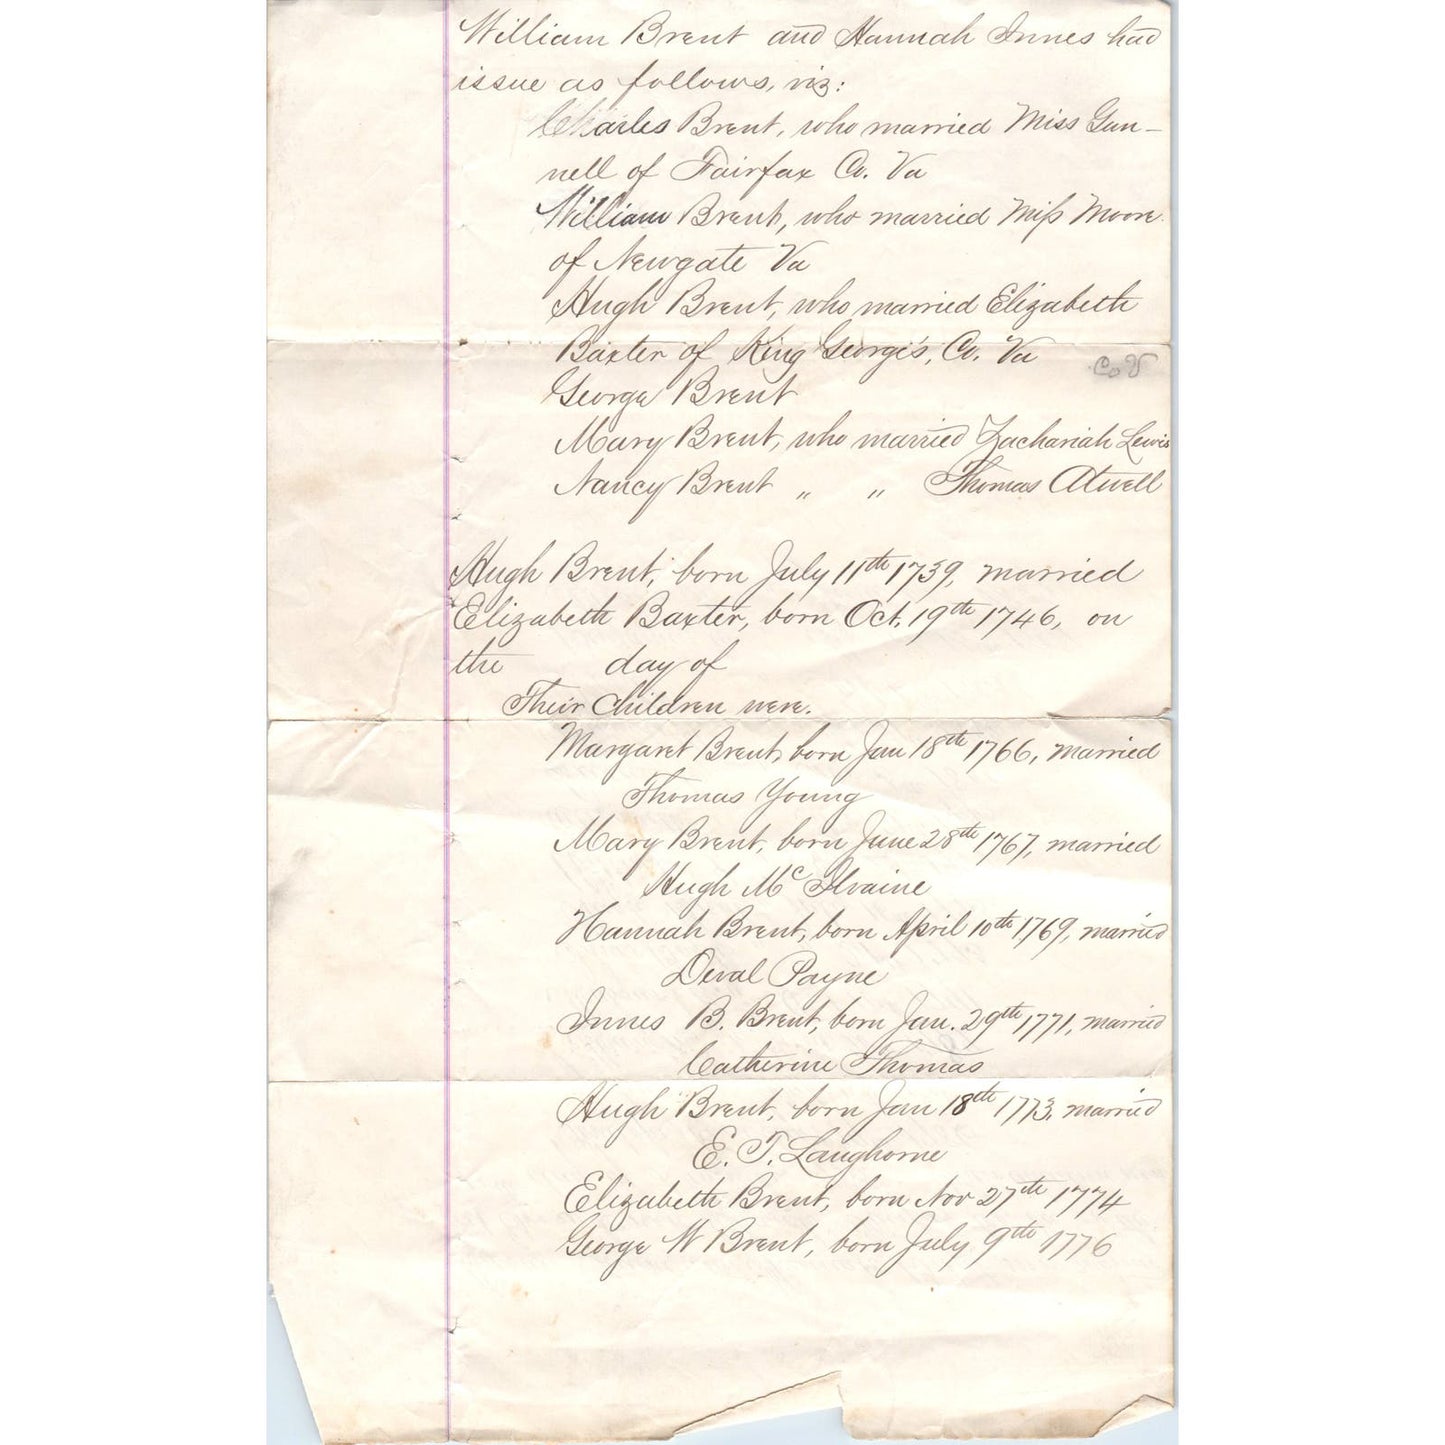 William Brent and Hannah Innes had
issue as follows, viz:
Charles Brent, who married Miss Gun-
nell of Fairfax Co. Va
William Brent, who married Miss Moore
of Newgate Va
Hugh Brent, who married Elizabeth
Baxter of King George's, Co. Va
George Brent
Mary Brent, who married Zachariah Lewis
Nancy Brent " " Thomas Atwell
Hugh Brent, born July 11th 1739, married
Elizabeth Baxter, born Oct. 19th 1746, on
the day of
Their Children were.
Margaret Brent, born Jan 18th 1766, married
Thomas Young
Mary Brent, born June 28th 1767, married
Hugh Mc Ilvaine
Hannah Brent, born April 10th 1769, married
Deval Payne
Innes B. Brent, born Jan. 29th 1771, married
Catherine Thomas
Hugh Brent, born Jan 18th 1773, married
E. T. Langhorne
Elizabeth Brent, born Nov 27th 1774
George W Brent, born July 9th 1776